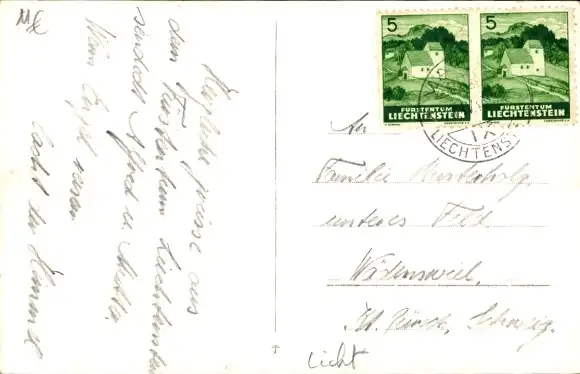 Herzliche Grüsse aus
dem Fürstentum Liechtenstein
sendet Alfred u.
Wenn Engel reisen
lacht der Himmel
5
FÜRSTENTUM
LIECHTENSTEIN
5
FÜRSTENTUM
LIECHTENSTEIN
LIECHTENS
An
Familie
unteres Feld
Wädenswil,
Kt. Zürich, Schweiz.
Licht